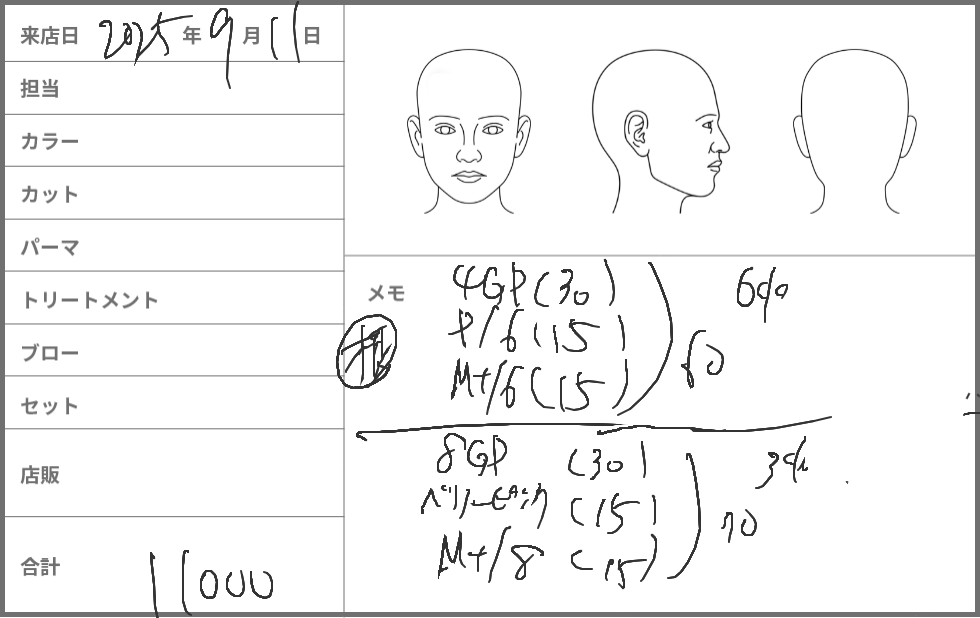 来店日 2025年9月11日
担当
カラー
カット
パーマ
トリートメント
ブロー
セット
店販
合計 11000
メモ
4GP(30)
P/6(15)
M+/6(15)
60
6%
8GP (30)
ベリーピンク (15)
M+/8 (15)
70
3%